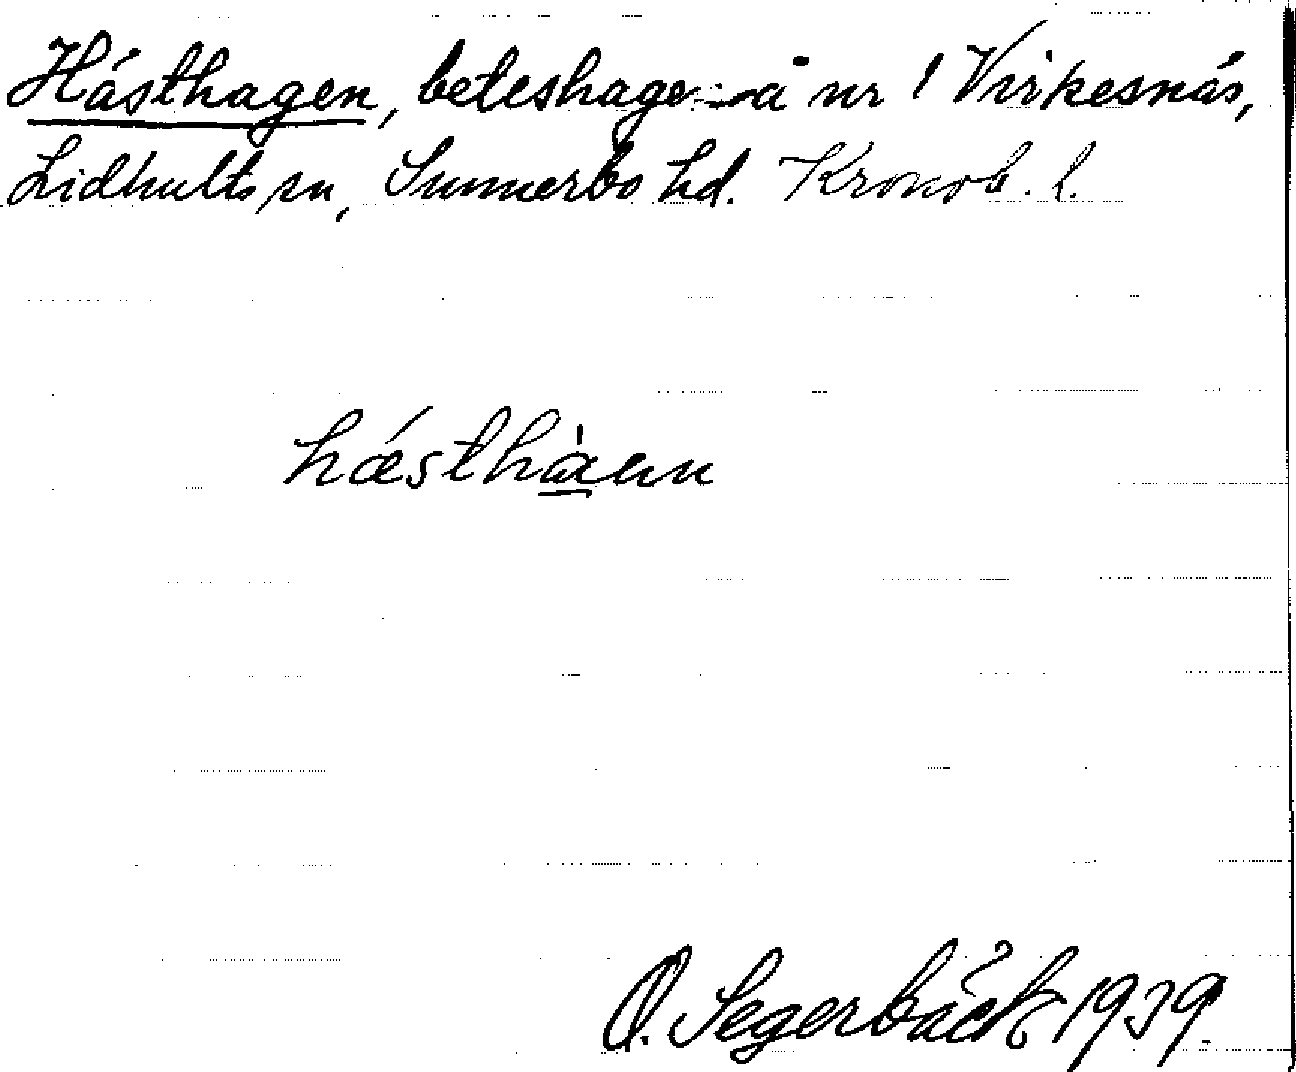 Hästhagen, beteshage å nr 1 Virkesnäs,
Lidhults sn, Sunnerbo hd. Kronob. l.
hǽsthàen
O. Segerbäck 1939.